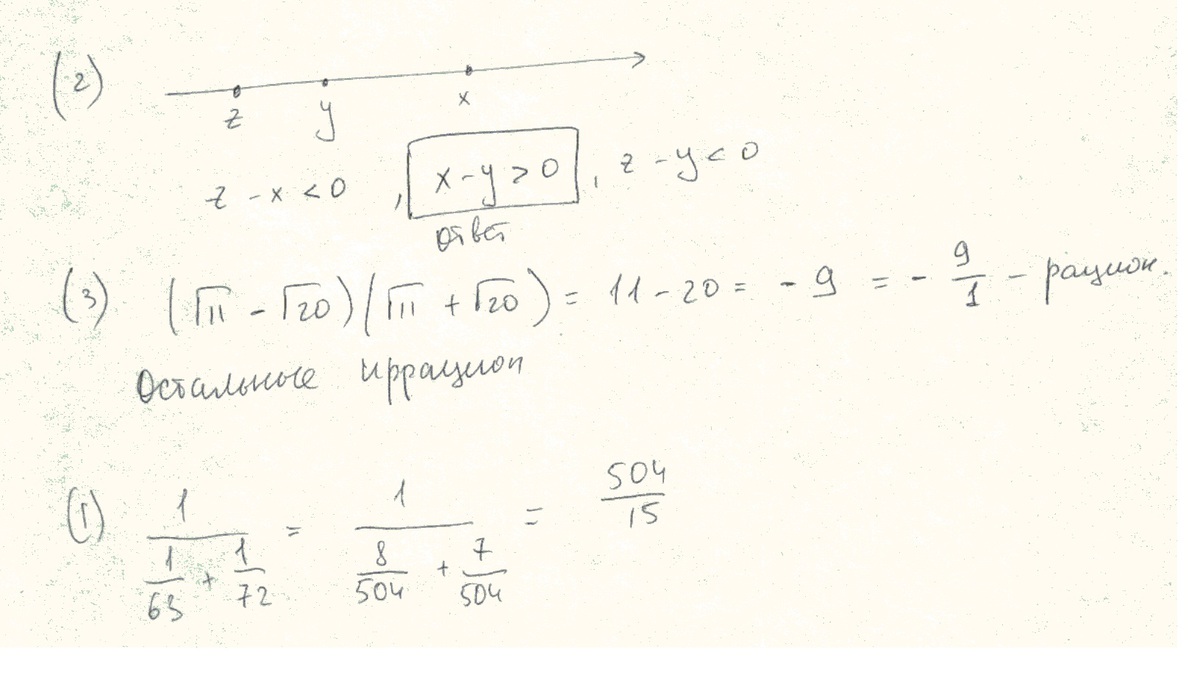 (2)
z y x
z - x < 0 , x - y > 0 , z - y < 0
ответ
(3) (√11 - √20)(√11 + √20) = 11 - 20 = - 9 = - 9/1 - рацион.
Остальные иррацион
(1) 1/(1/63 + 1/72) = 1/(8/504 + 7/504) = 504/15